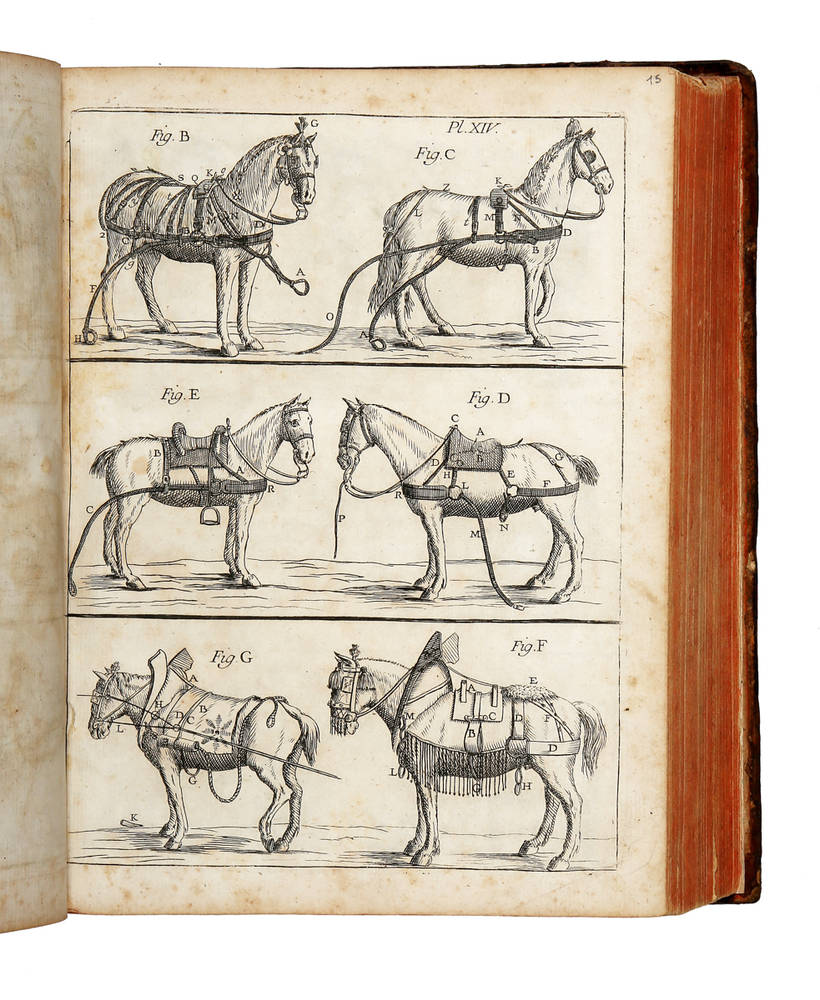 15
Pl. XIV.
Fig. B
G
S Q K g
t
3
M N D
2 O B
9
F
A
H
Fig. C
K
Z
L M N D
B
O
A
Fig. E
B
A
R
C
Fig. D
C
A
D G B G
H L E F
R
P
M N
Fig. G
A
H B
D C
L
G
K
Fig. F
E
A
M C D F
B D
L
G H